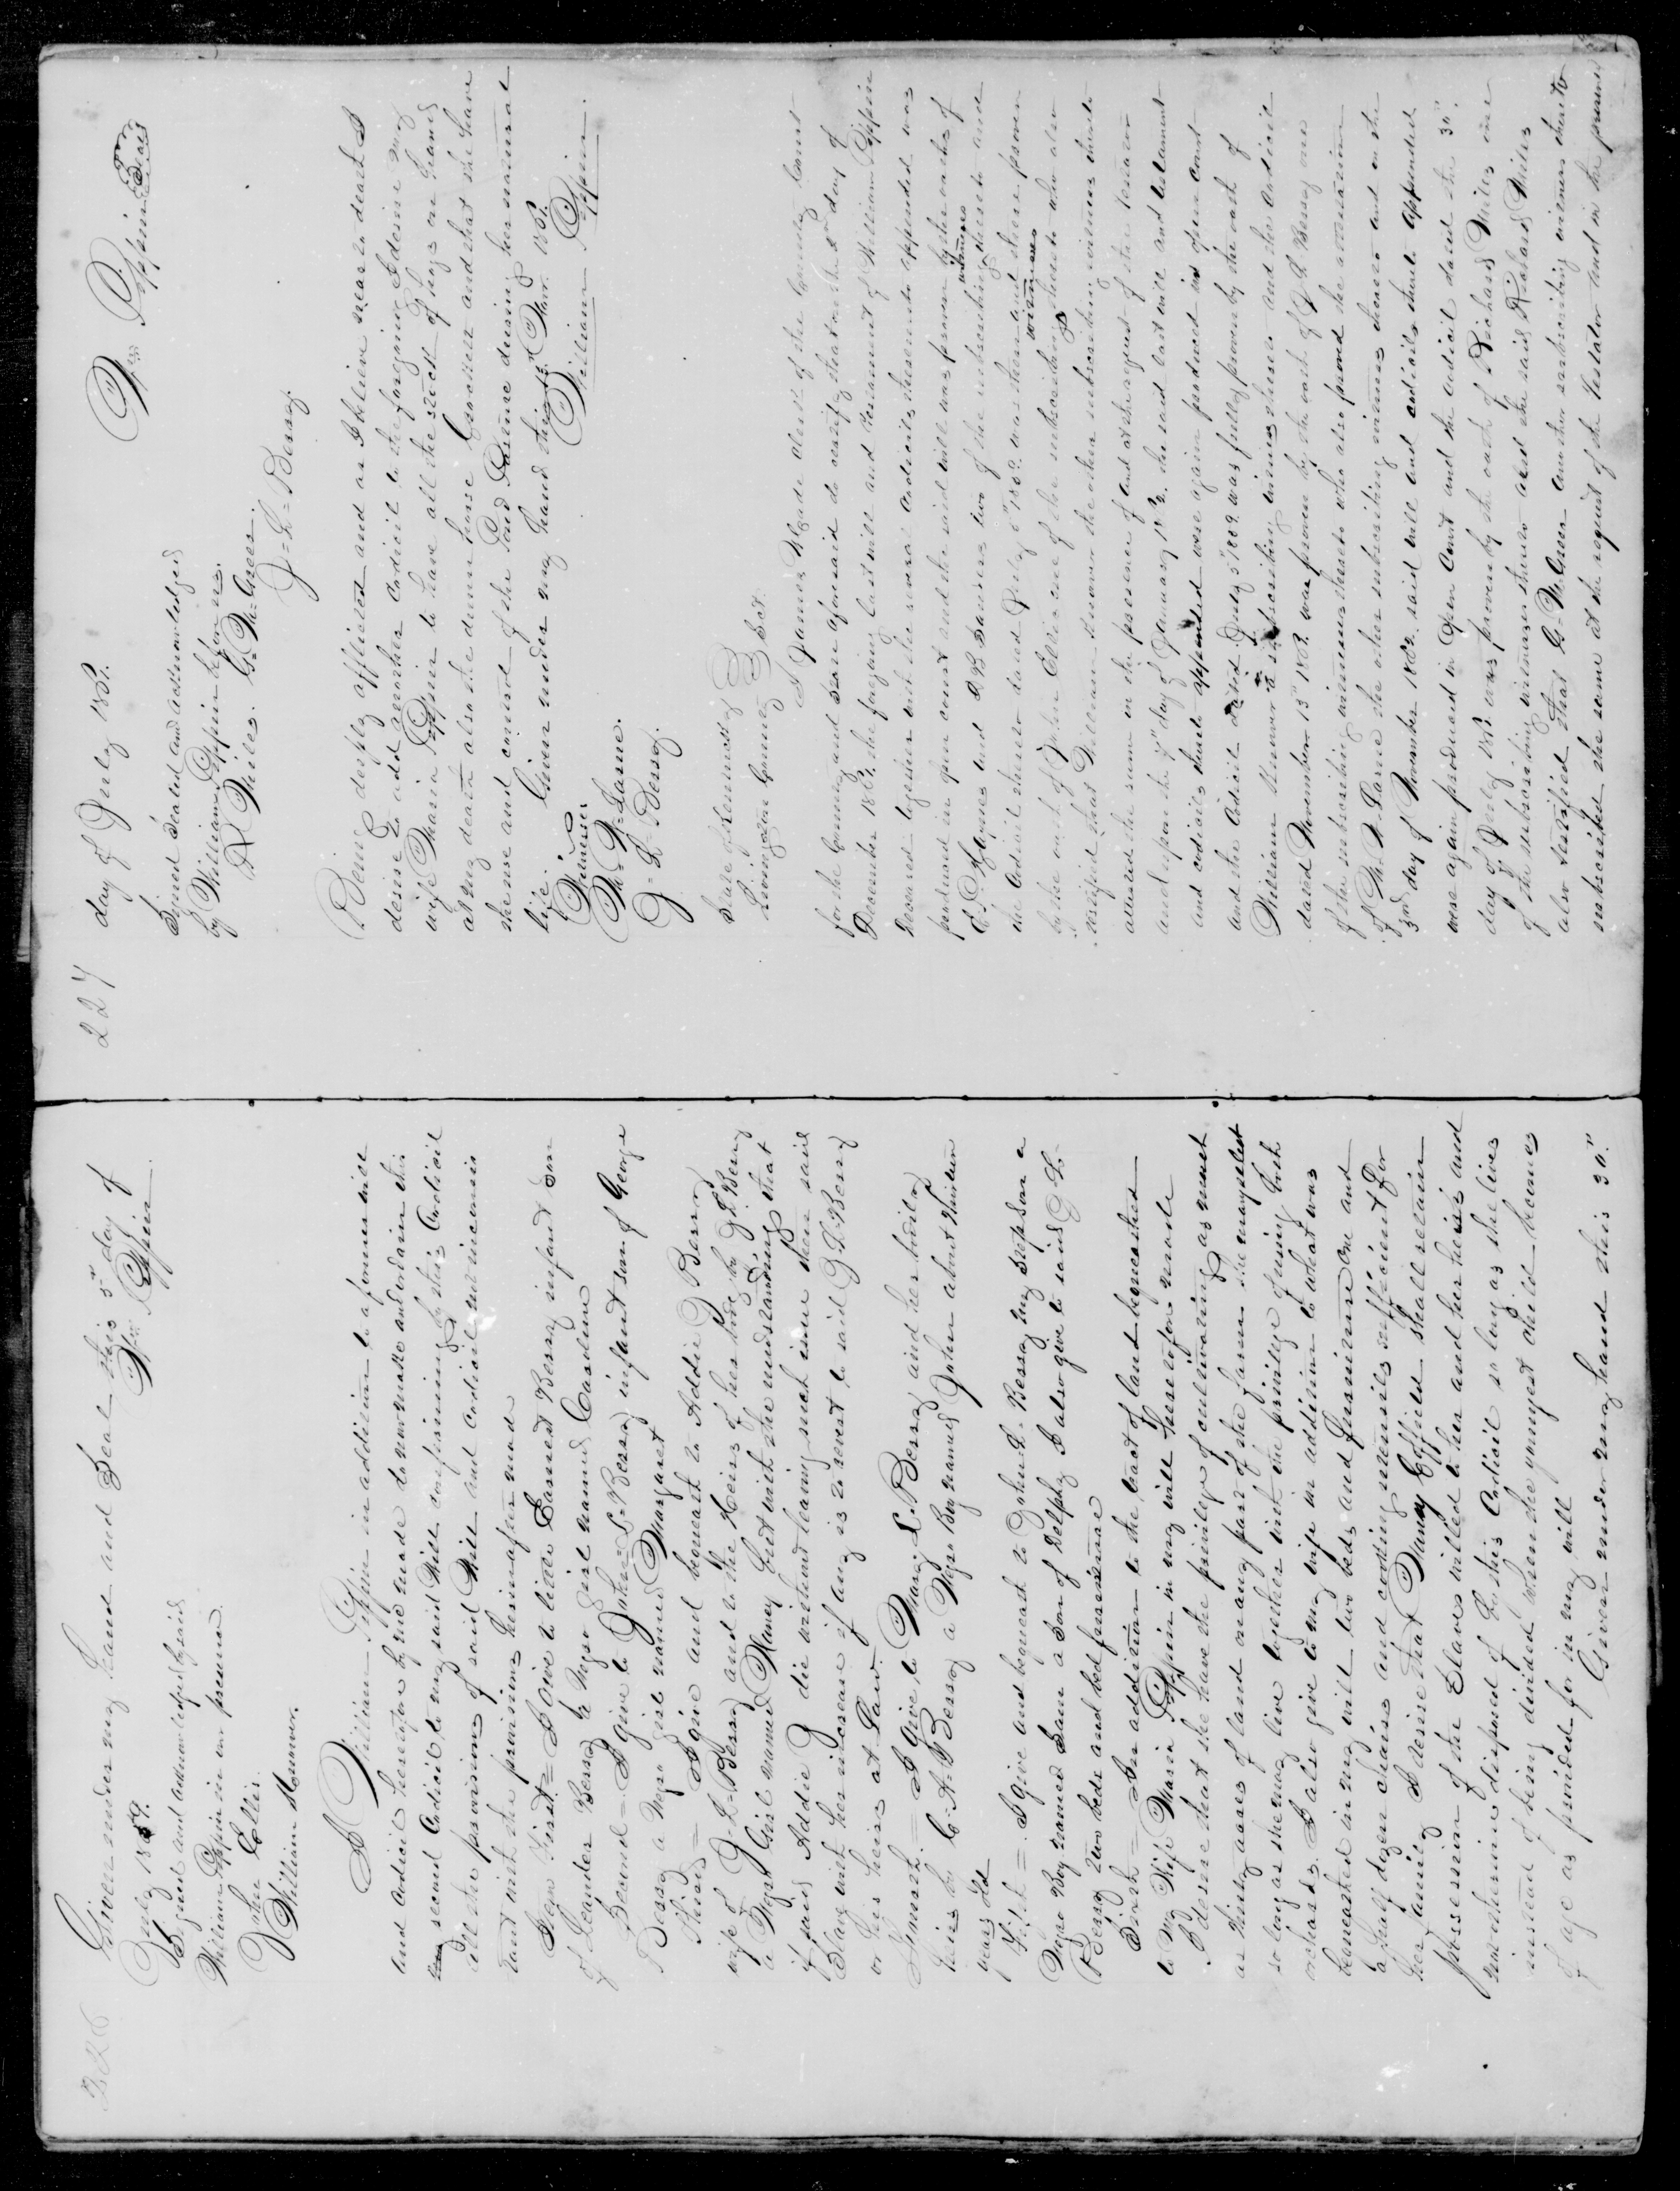 226
Given under my hand and Seal this 5" day of
July 1859. Wm Pippin
Signed and acknowledged by said
William Pippin in our presence.
John Ellis.
William Skinner.
I William Pippin in addition to a former will
and codicil heretofore by me made do now make and ordain this
my second Codicil to my said Will confirming by this Codicil
all the provisions of said Will and Codicil not inconsis
tant with the provisions hereinafter made
Item First = I give to little Earnest Berry infant son
of Leander Berry a Negro Girl named Caroline
Second = I give to John S. Berry infant son of George
Berry a Negro girl named Margaret
Third = I give and bequeath to Addie J Berry
wife of J-L-Berry and to the Heirs of her body by J L Berry
a Negro Girl named Nancy but with the understanding that
if said Addie J die without leaving such issue then said
Slave with her increase if any is to revert to said J-L-Berry
or his heirs at Law.
Fourth = I give to Mary L. Berry and her bodily
heirs by C-A-Berry a Negro Boy named John about thirteen
years old
Fifth = I give and bequeath to John L. Berry my step son a
Negro Boy named Sam a Son of Delphy I also give to said J L
Berry two beds and bed furniture
Sixth = In addition to the tract of land bequeathed
to my Wife Maria Pippin in my will heretofore made
I desire that she have the privilege of cultivating as much
as thirty acres of land on any part of the farm she may select
so long as she may live together with the privilege of using both
orchards. I also give to my wife in addition to what was
bequeathed in my will two beds and furniture one and
a half dozen chairs and cooking utensils sufficient for
her family I desire that Nancy Coffield shall retain
possession of the Slaves willed to her and her heirs and
not otherwise disposed of by this Codicil so long as she lives
instead of being divided when the youngest child becomes
of age as provided for in my will
Given under my hand this 30"
227
day of July 1861. Wm Pippin Seal
Signed Sealed and acknowledged
by William Pippin before us.
R Miles. G. McCreer.
J=L=Berry.
Being deeply afflicted and as I believe near to death I
desire to add another codicil to the foregoing I desire my
wife Maria Pippin to have all the stock of hogs on hands
at my death also the dun horse and that she have
the use and control of the Pond Pasture during her natural
life. Given under my hand this Nov. 1861.
Witnesses. William Pippin.
W. W. Lane.
J-L-Berry.
State of Kentucky
Livingston County Sct.
I James clerk of the County Court
for the County and State aforesaid do certify that on the 2nd day of
December 1861. the forgoing last will and testament of William Pippin
Deceased together with the several codicils thereunto appended was
produced in open court and the said will was proven by the oaths of
C. Haynes and D. B. Sanders two of the subscribing witnesses thereto and
the codicil thereto dated July 5" 1859. was then and there proven
by the oath of John Ellis one of the subscribing witnesses thereto who also
testified that William Skinner the other subscribing witness thereto
attested the same in the presence of and at the request of the testator
and upon the 7" day of January 1862. the said last will and testament
and codicils thereto appended were again produced in open court
and the codicil dated July 5" 1859. was fully proven by the oath of
William Skinner a subscribing witness thereto and the codicil
dated November 13" 1861. was proven by the oath of J L Berry one
of the subscribing witnesses thereto who also proved the attestation
of W. W. Lane the other subscribing witness thereto and on the
3rd day of November 1862. said will and codicils thereto appended
were again produced in open court and the codicil dated the 30".
day of July 1861. was proven by the oath of Richard Miles one
of the subscribing witnesses thereto and the said Richard Miles
also testified that G. McCreer another subscribing witness thereto
subscribed the same at the request of the testator and in the presence